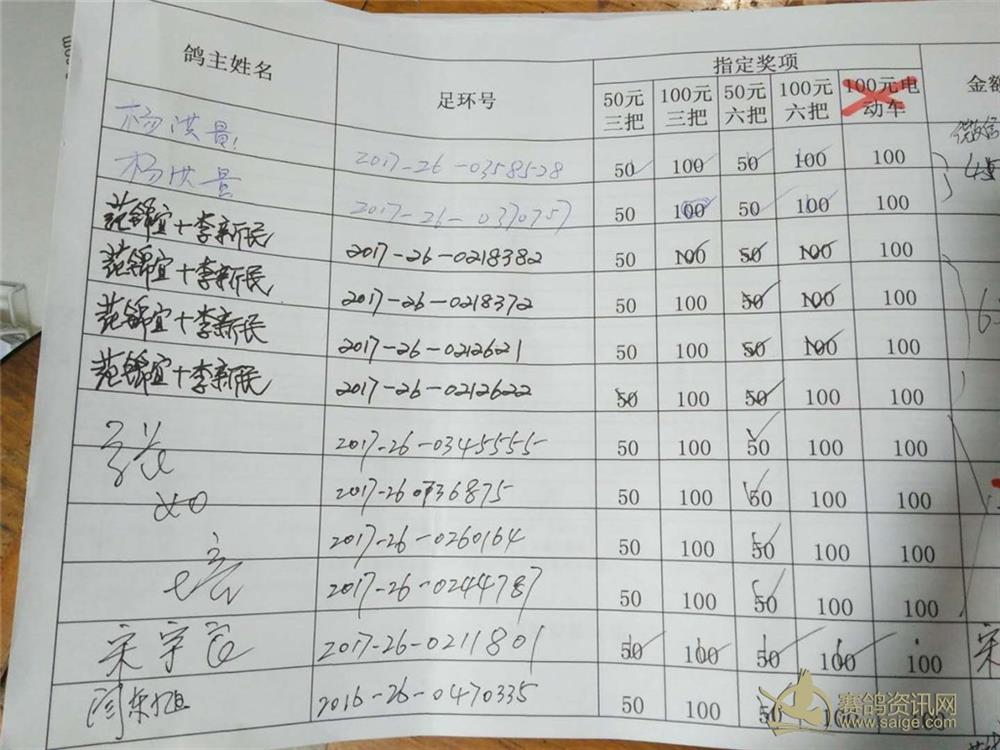 鸽主姓名 足环号 指定奖项 金额
50元三把 100元三把 50元六把 100元六把 100元电动车
杨洪量 2017-26-0358528 50 100 50 100 100
杨洪量 2017-26-0370757 50 100 50 100 100
范锦宜+李新民 2017-26-0218382 50 100 50 100 100
范锦宜+李新民 2017-26-0218372 50 100 50 100 100
范锦宜+李新民 2017-26-0212621 50 100 50 100 100
范锦宜+李新民 2017-26-0212622 50 100 50 100 100
2017-26-0345555 50 100 50 100 100
2017-26 50 100 50 100 100
2017-26-0260164 50 100 50 100 100
2017-26-0244787 50 100 50 100 100
2017-26-0211801 50 100 50 100 100
2016-26-0470335 50 100 50 100
赛鸽资讯网
www.saige.com